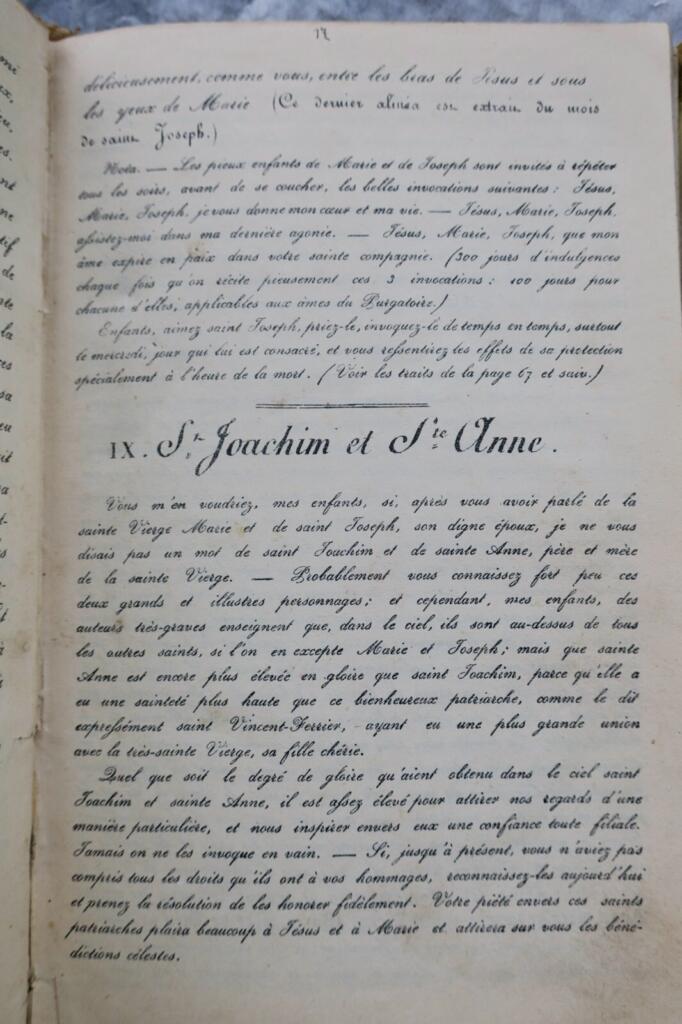 17
délicieusement, comme vous, entre les bras de Jésus et sous
les yeux de Marie (Ce dernier alinéa est extrait du mois
de saint Joseph.)
Nota. — Les pieux enfants de Marie et de Joseph sont invités à répéter
tous les soirs, avant de se coucher, les belles invocations suivantes : Jésus,
Marie, Joseph, je vous donne mon cœur et ma vie. — Jésus, Marie, Joseph,
assistez-moi dans ma dernière agonie. — Jésus, Marie, Joseph, que mon
âme expire en paix dans votre sainte compagnie. (300 jours d'indulgences
chaque fois qu'on récite pieusement ces 3 invocations : 100 jours pour
chacune d'elles, applicables aux âmes du Purgatoire.)
Enfants, aimez saint Joseph, priez-le, invoquez-le de temps en temps, surtout
le mercredi, jour qui lui est consacré, et vous ressentirez les effets de sa protection
spécialement à l'heure de la mort. (Voir les traits de la page 67 et suiv.)
IX. St. Joachim et Ste. Anne.
Vous m'en voudriez, mes enfants, si, après vous avoir parlé de la
sainte Vierge Marie et de saint Joseph, son digne époux, je ne vous
disais pas un mot de saint Joachim et de sainte Anne, père et mère
de la sainte Vierge. — Probablement vous connaissez fort peu ces
deux grands et illustres personnages; et cependant, mes enfants, des
auteurs très-graves enseignent que, dans le ciel, ils sont au-dessus de tous
les outres saints, si l'on en excepte Marie et Joseph; mais que sainte
Anne est encore plus élevée en gloire que saint Joachim, parce qu'elle a
eu une sainteté plus haute que ce bienheureux patriarche, comme le dit
expressément saint Vincent-Ferrier, ayant eu une plus grande union
avec la très-sainte Vierge, sa fille chérie.
Quel que soit le degré de gloire qu'aient obtenu dans le ciel saint
Joachim et sainte Anne, il est assez élevé pour attirer nos regards d'une
manière particulière, et nous inspirer envers eux une confiance toute filiale.
Jamais on ne les invoque en vain. — Si, jusqu'à présent, vous n'aviez pas
compris tous les droits qu'ils ont à vos hommages, reconnaissez-les aujourd'hui
et prenez la résolution de les honorer fidèlement. Votre piété envers ces saints
patriarches plaira beaucoup à Jésus et à Marie et attirera sur vous les béné-
dictions célestes.